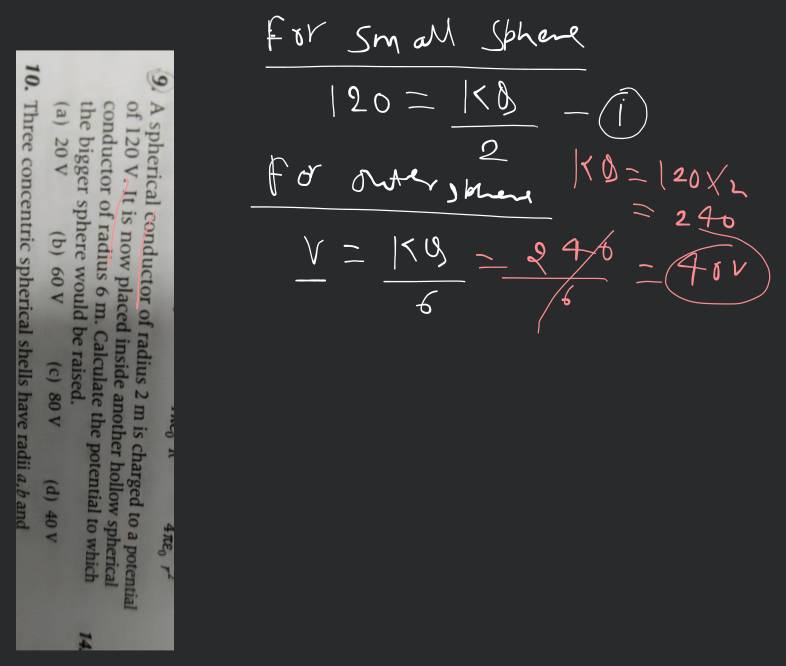 For small sphere
120 = KQ/2 - (i)
KQ = 120 × 2
= 240
For outer sphere
V = KQ/6 = 240/6 = 40 V
4πε₀ r²
9. A spherical conductor of radius 2 m is charged to a potential
of 120 V. It is now placed inside another hollow spherical
conductor of radius 6 m. Calculate the potential to which
the bigger sphere would be raised.
(a) 20 V (b) 60 V (c) 80 V (d) 40 V
14.
10. Three concentric spherical shells have radii a, b and